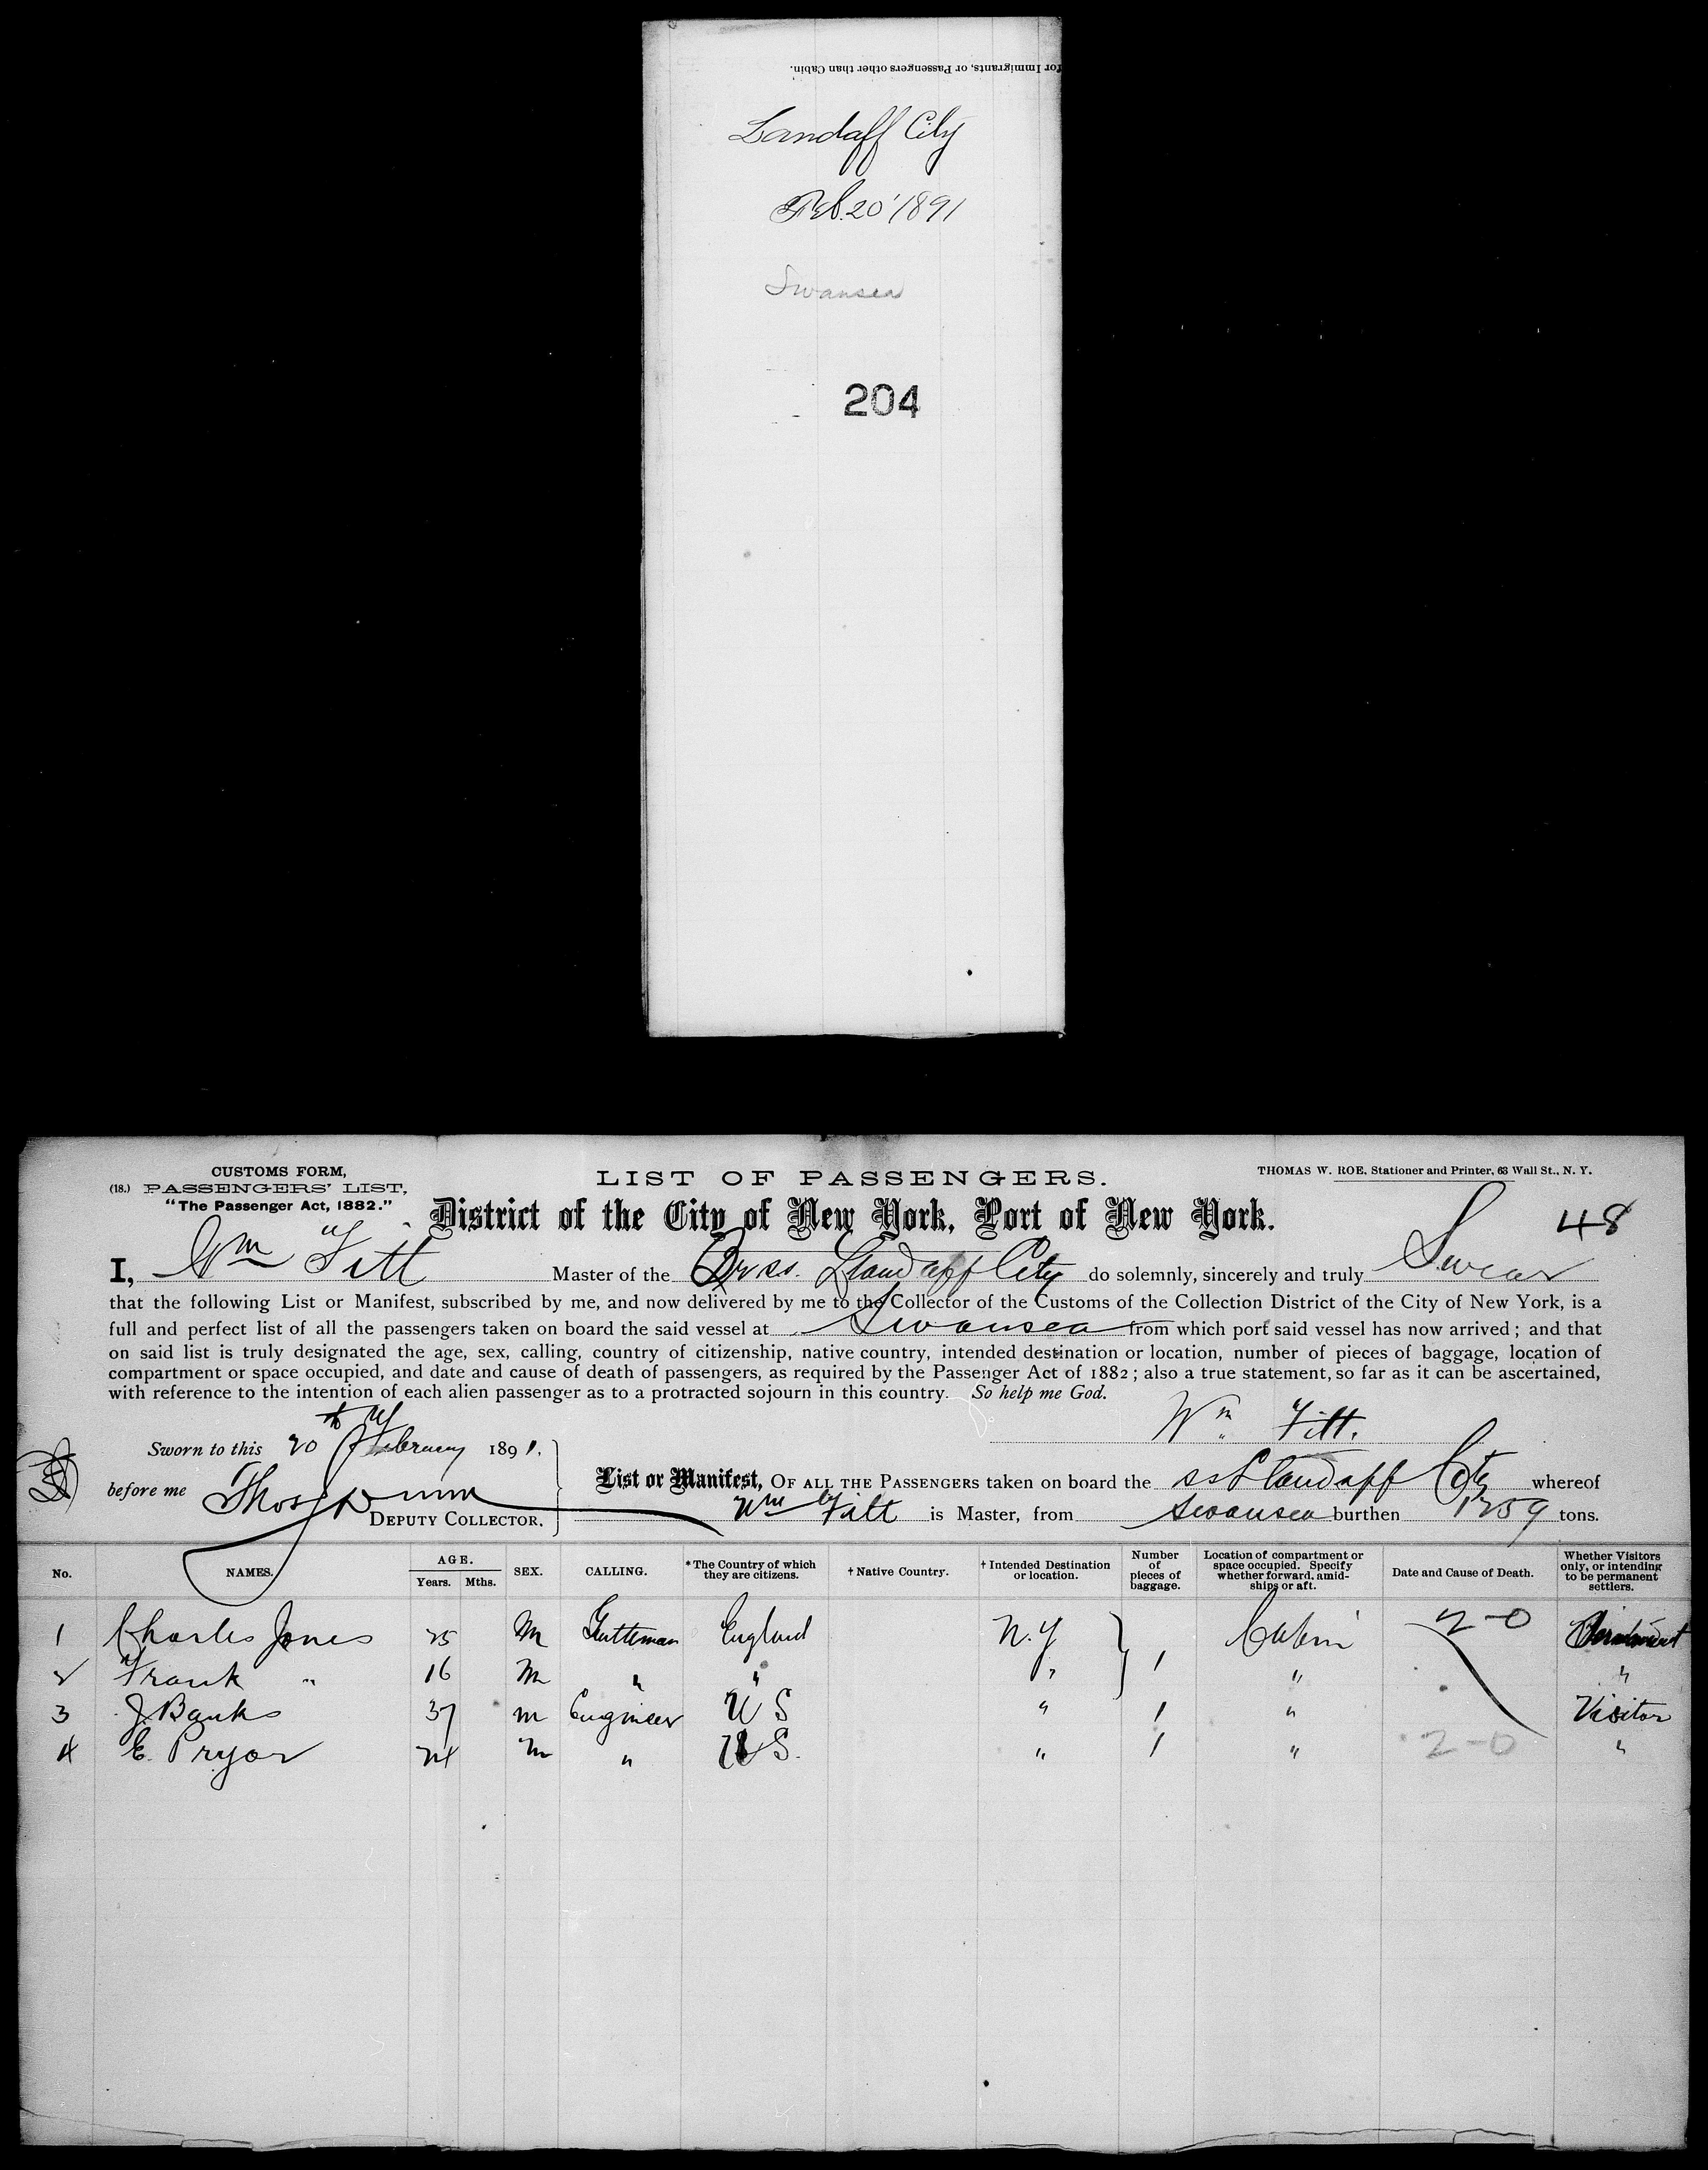 for Immigrants, or Passengers other than Cabin.
Landaff City
Feb. 20' 1891
Swansea
204
CUSTOMS FORM,
(18.) PASSENGERS' LIST,
"The Passenger Act, 1882."
LIST OF PASSENGERS.
THOMAS W. ROE, Stationer and Printer, 63 Wall St., N. Y.
District of the City of New York, Port of New York.
48
I, Wm Fitt Master of the Br ss. Llandaff City do solemnly, sincerely and truly Swear
that the following List or Manifest, subscribed by me, and now delivered by me to the Collector of the Customs of the Collection District of the City of New York, is a
full and perfect list of all the passengers taken on board the said vessel at Swansea from which port said vessel has now arrived; and that
on said list is truly designated the age, sex, calling, country of citizenship, native country, intended destination or location, number of pieces of baggage, location of
compartment or space occupied, and date and cause of death of passengers, as required by the Passenger Act of 1882; also a true statement, so far as it can be ascertained,
with reference to the intention of each alien passenger as to a protracted sojourn in this country. So help me God.
Wm Fitt.
Sworn to this 20th February 1891.
before me Thos
DEPUTY COLLECTOR.
List or Manifest, OF ALL THE PASSENGERS taken on board the ss Llandaff City whereof
Wm Fitt is Master, from Swansea burthen 1259 tons.
No. NAMES. AGE. Years. Mths. SEX. CALLING. *The Country of which they are citizens. †Native Country. †Intended Destination or location. Number of pieces of baggage. Location of compartment or space occupied. Specify whether forward, amidships or aft. Date and Cause of Death. Whether Visitors only, or intending to be permanent settlers.
1 Charles Jones 25 M Gentleman England N.Y Cabin 2-0 Permanent
2 Frank " 16 M " " " 1 " "
3 J. Banks 37 m Engineer U S " 1 " Visitor
4 E. Pryor 24 m " U S. " 1 " 2-0 "